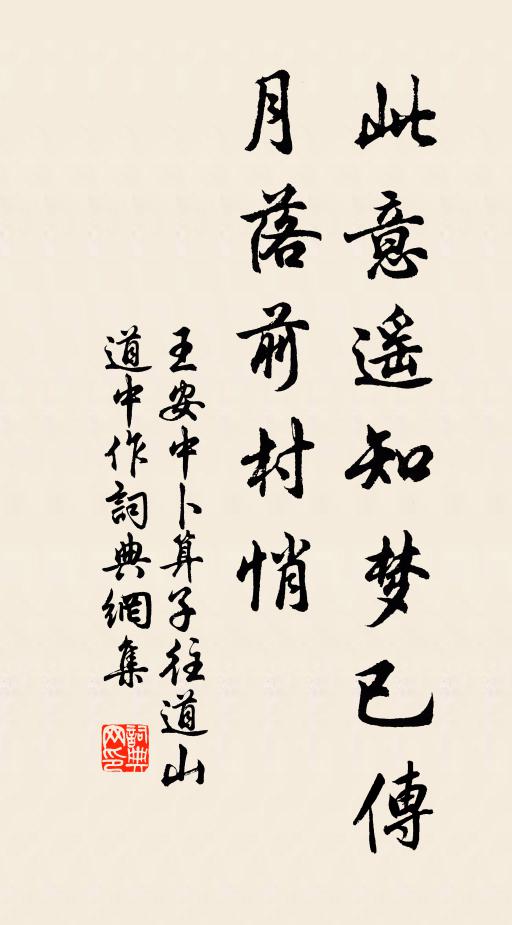 此意遥知梦已傳
月落前村悄
王安中卜算子往道山
道中作詞典網集
詞典网印